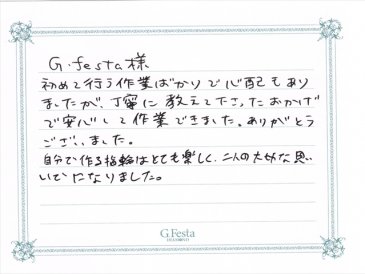 G.festa様
初めて行う作業ばかりで心配もあり
ましたが、丁寧に教えて下さったおかげ
で安心して作業できました。ありがとう
ございました。
自分で作る指輪はとても楽しく、二人の大切な思い
いでになりました。
G.Festa
DIAMOND